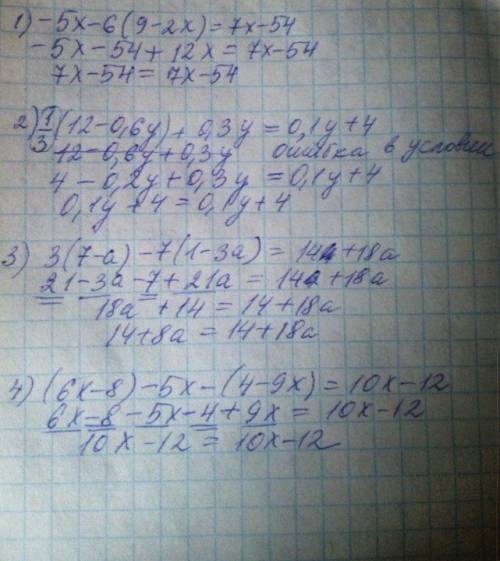 1) -5x-6(9-2x)=7x-54
-5x-54+12x=7x-54
7x-54=7x-54
2) 1/3(12-0,6y)+0,3y=0,1y+4
12-0,6y+0,3y ошибка в условии
4-0,2y+0,3y=0,1y+4
0,1y+4=0,1y+4
3) 3(7-a)-7(1-3a)=14+18a
21-3a-7+21a=14+18a
18a+14=14+18a
14+8a=14+18a
4) (6x-8)-5x-(4-9x)=10x-12
6x-8-5x-4+9x=10x-12
10x-12=10x-12